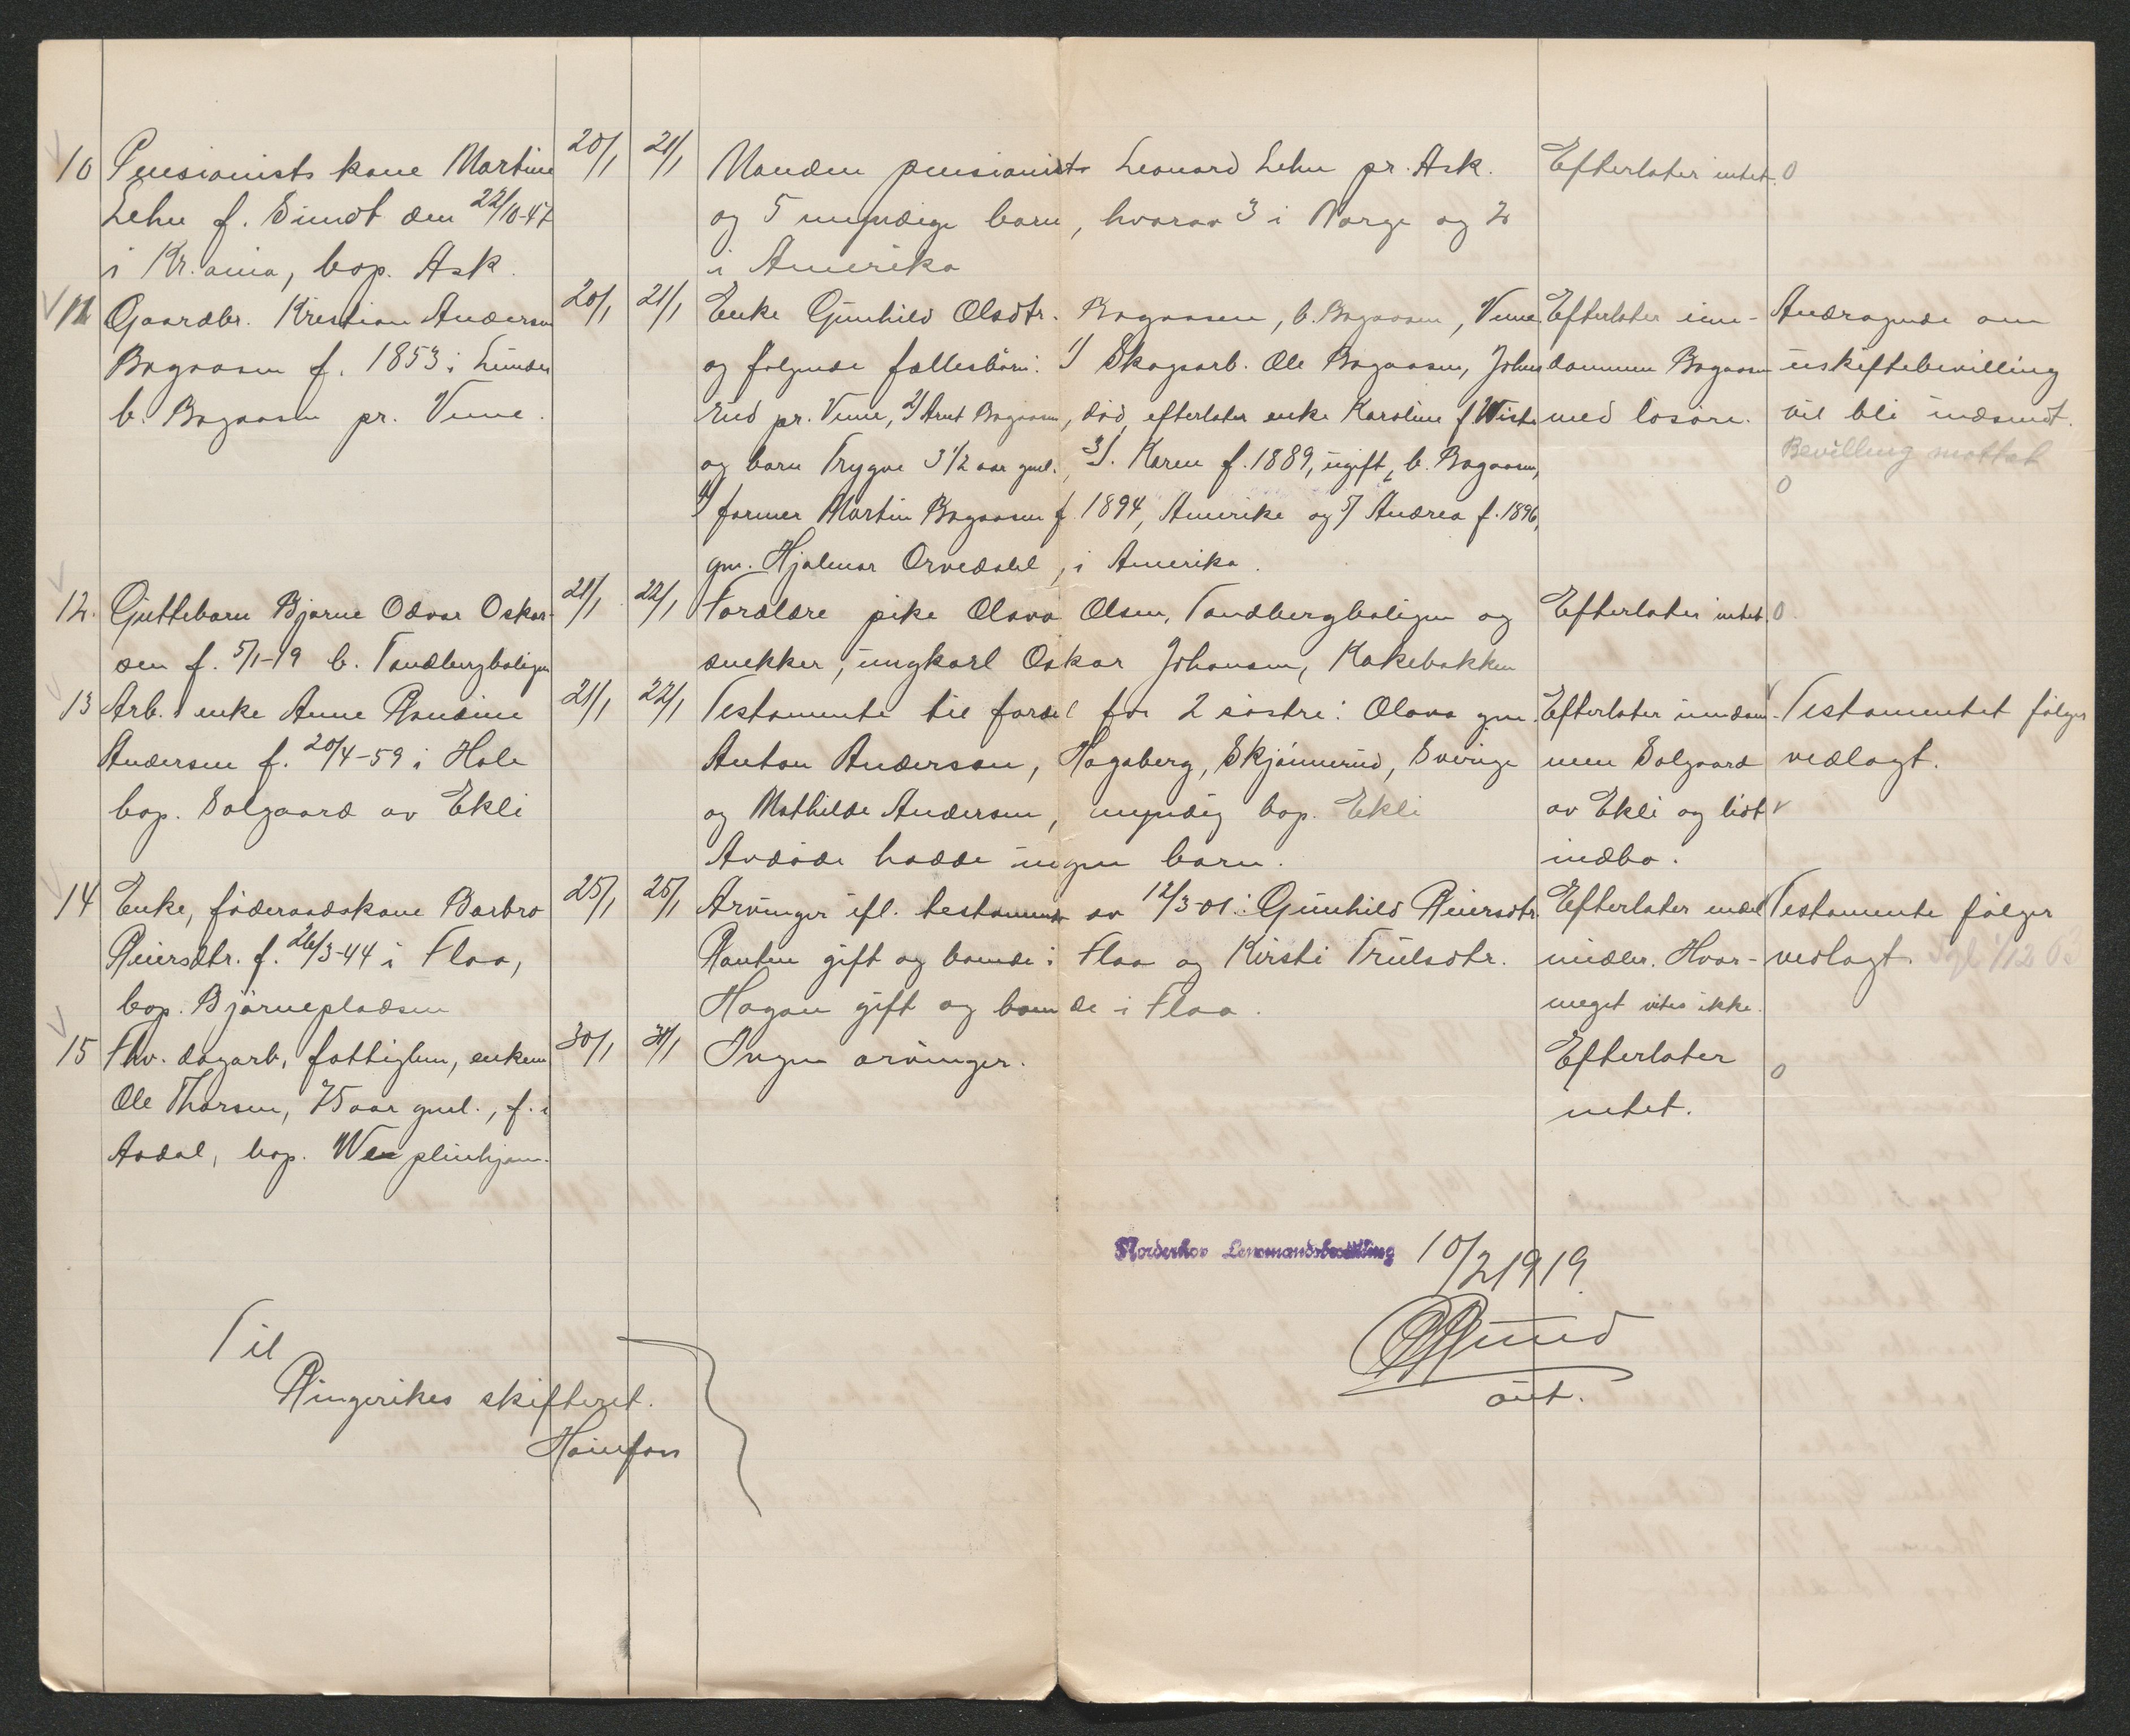 10 Pensionists kone Martine 20/1 21/1 Manden pensionists Leonard Lehn pr. Ask. Efterlater intet. 0
Lehn f. Sundt den 22/10-47 og 5 myndige barn, hvorav 3 i Norge og 2
i Kr.ania, bop. Ask. i Amerika
11 Gaardbr. Kristian Andersen 20/1 21/1 Enke Gunhild Olsdtr. Bragaasen, b. Bragaasen, Veme. Efterlater eien- Andragende om
Bragaasen f. 1853 i Lunder og følgende fællesbarn: 1/ Skogsarb. Ole Bragaasen, Johns dommen Bragaasen uskiftebevilling
b. Bragaasen pr. Veme. rud pr. Veme, 2/ Arnt Bragaasen, død, efterlater enke Karoline f. Wiste med løsøre. vil bli indsendt.
og barn Trygve 3 1/2 aar gml., 3/. Karen f. 1889, ugift, b. Bragaasen, Bevilling mottat
4/ farmer Martin Bragaasen f. 1894, Amerika og 5/ Andrea f. 1896, 0
gm. Hjalmar Orvedahl, i Amerika.
12. Guttebarn Bjarne Odvar Oskar- 21/1 22/1 Forældre pike Olava Olsen, Tandbergboligen og Efterlater intet. 0
sen f. 5/1-19 b. Tandbergboligen snekker, ungkarl Oskar Johansen, Kakebakken
13 Arb. enke Anne Randine 21/1 22/1 Testamente til fordel for 2 søstre: Olava gm. Efterlater eiendom- Testamentet følger
Andersen f. 20/4-59 i Hole Anton Anderson, Hagaberg, Skjønnerud, Sverige men Solgaard vedlagt.
bop. Solgaard av Ekli og Mathilde Andersen, myndig bop. Ekli av Ekli og lidt
Avdøde hadde ingen barn. indbo.
14 Enke, føderaadskone Barbro 25/1 25/1 Arvinger ifl. testamente av 12/3-01: Gunhild Reiersdtr. Efterlater endel Testamente følger
Reiersdtr. f. 26/3-44 i Flaa, Rauten gift og boende i Flaa og Kirsti Trulsdtr. midler. Hvor- vedlagt.
bop. Bjørnepladsen Hagan gift og boende i Flaa. meget vites ikke.
15 Fhv. dagarb, fattiglem, enkem. 30/1 31/1 Ingen arvinger. Efterlater 0
Ole Thorsen, 75 aar gml., f. i intet.
Aadal, bop. Wen pleiehjem.
Norderhov Lensmandsbestilling 10/2 1919.
aut.
Til
Ringerikes skifteret.
Hønefoss